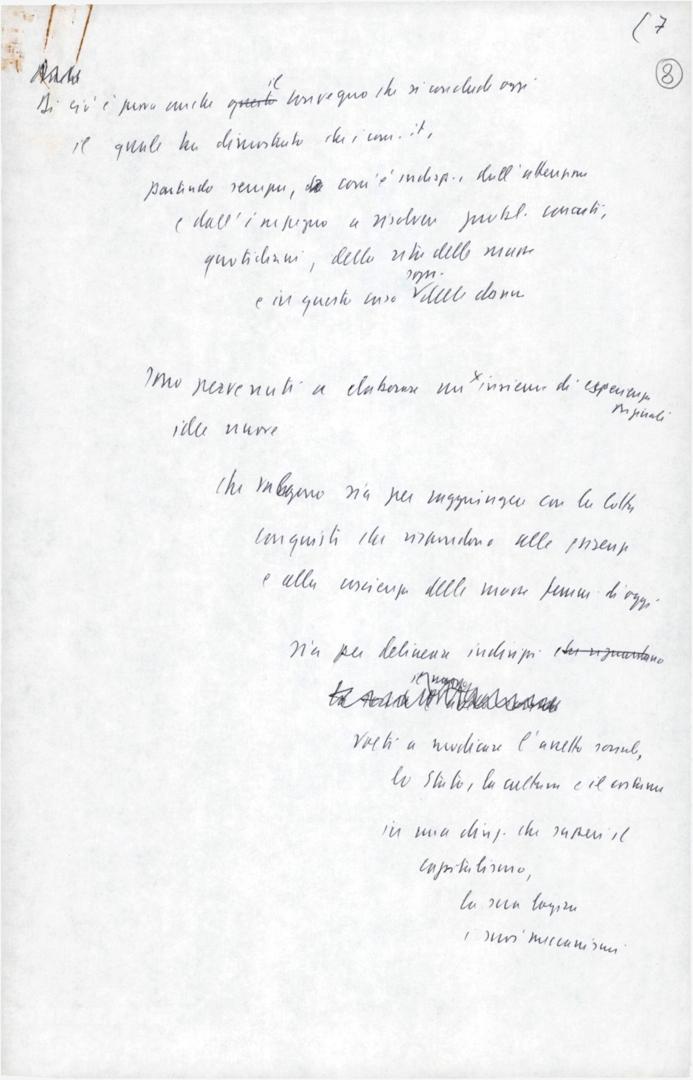 (7
8
Di ciò è prova anche questo il convegno che si conclude oggi
il quale ha dimostrato che i com. it.,
partendo sempre, com'è indisp., dall'attenzione
e dall'impegno a risolvere probl. concreti,
quotidiani, della vita delle masse
e in questo caso sopr. delle donne
sono pervenuti a elaborare un insieme di esperienze originali
idee nuove
che valgono sia per raggiungere con la lotta
conquiste che rispondono alle esigenze
e alla coscienza delle masse femm. di oggi
sia per delineare indirizzi che riguardano
volti a modificare l'assetto sociale,
lo Stato, la cultura e il costume
in una direz. che superi il
capitalismo,
la sua logica
i suoi meccanismi